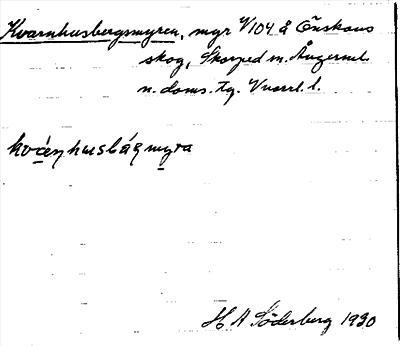 Kvarnhusbergsmyren, myr V104 å Önskans
skog, Skorped sn. Ångerml.
n. doms. tg. Vnorrl. l.
kvàṇhusbáẓmyra
H A Söderberg 1930